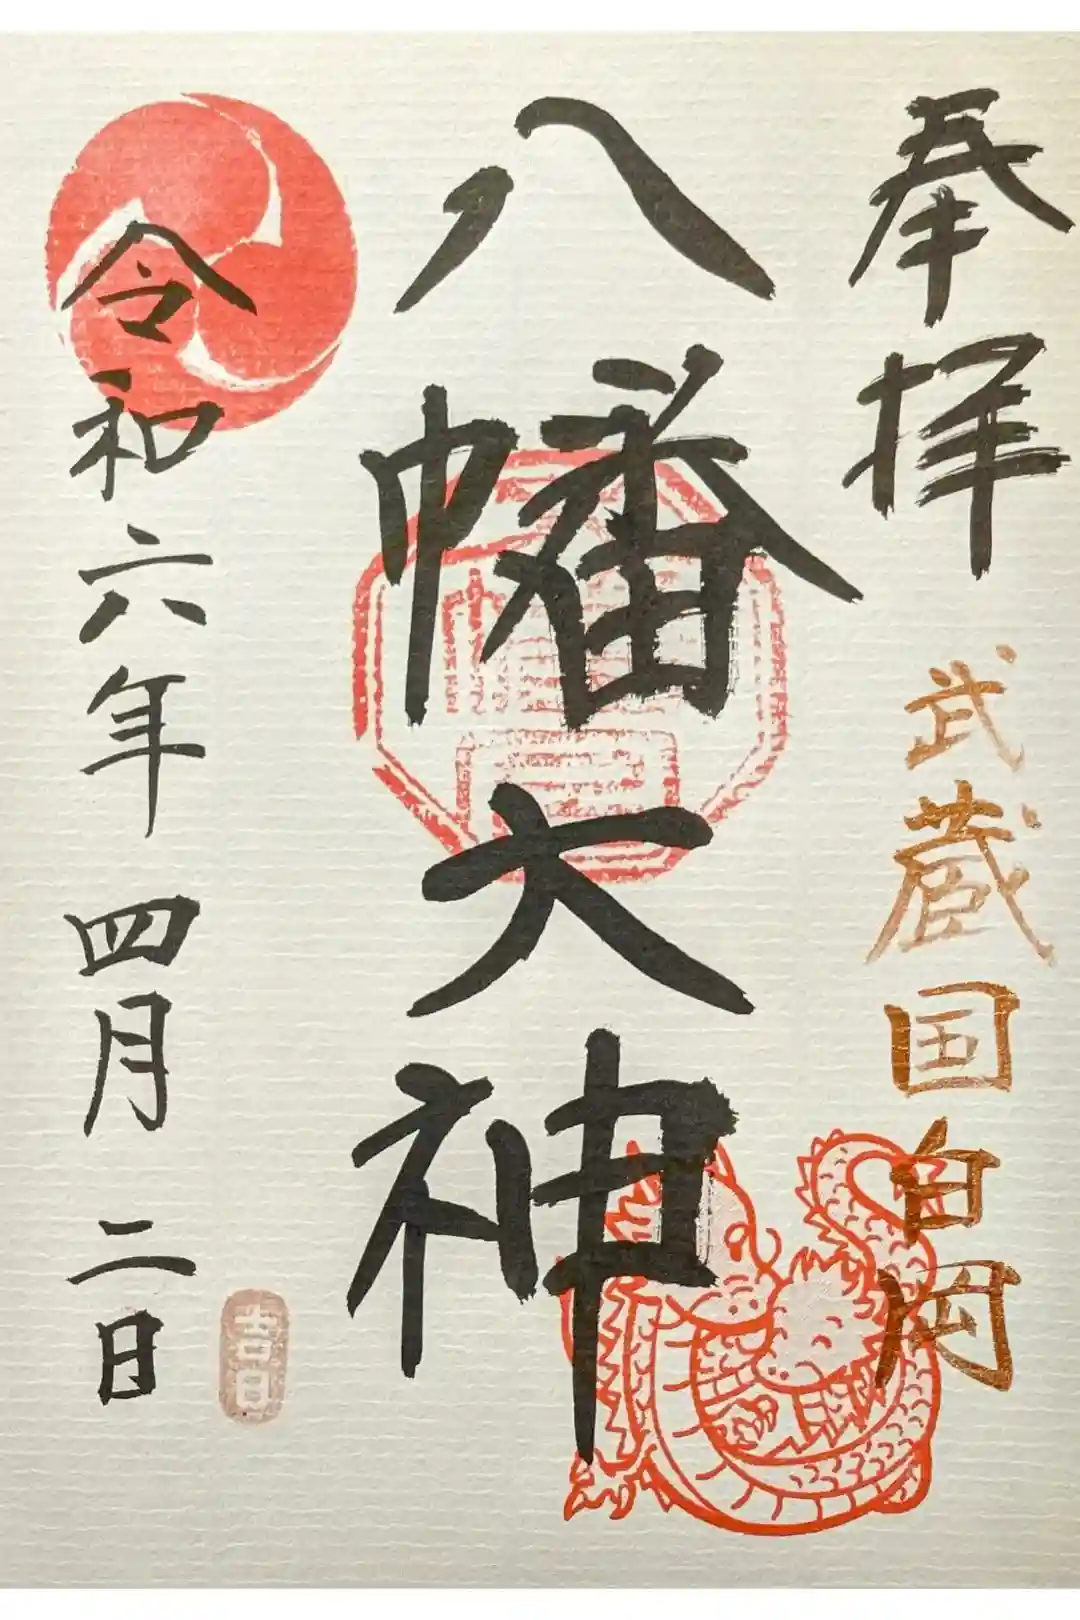 奉拝
武蔵国白岡
八幡大神
令和六年四月二日